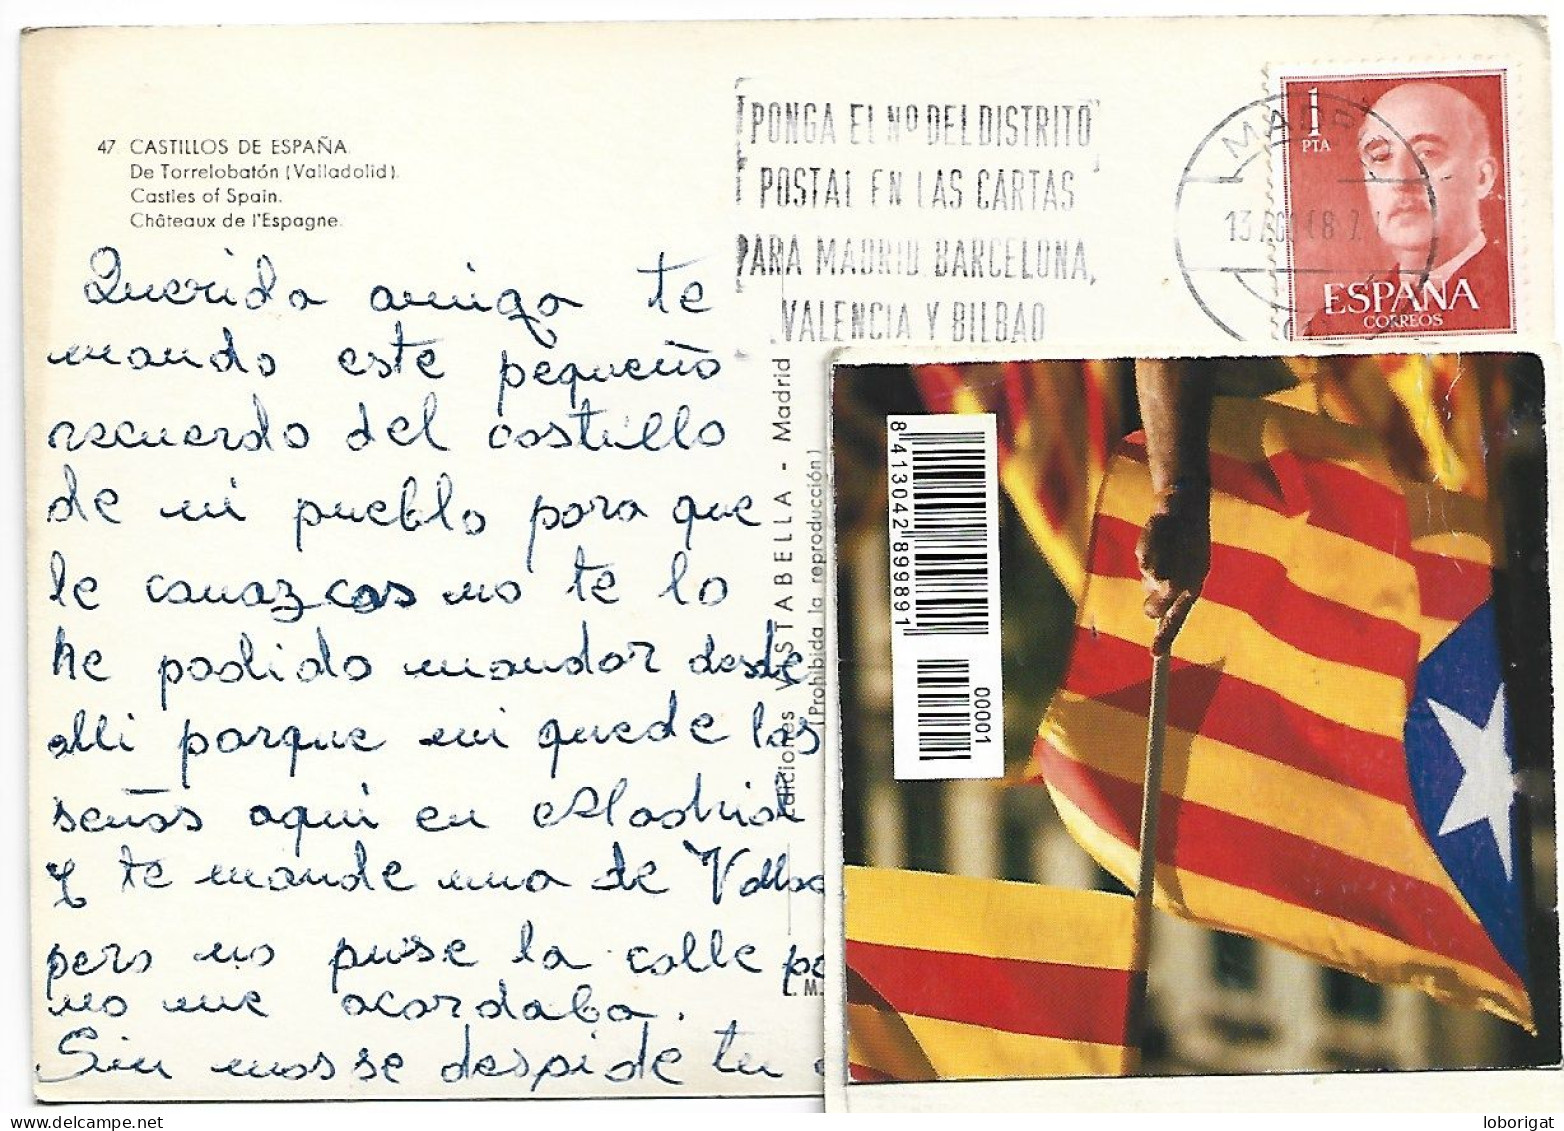 47 CASTILLOS DE ESPAÑA.
De Torrelobatón (Valladolid).
Castles of Spain.
Châteaux de l'Espagne.
PONGA EL Nº DEL DISTRITO
POSTAL EN LAS CARTAS
PARA MADRID, BARCELONA,
VALENCIA Y BILBAO
1
PTA
ESPAÑA
CORREOS
Querida amiga te
mando este pequeño
recuerdo del costillo
de mi pueblo para que
le conozcas no te lo
he podido mandar desde
alli porque mi quede las
señas aqui en Madrid
y te mande una de
pero no puse la calle
no me acordaba.
Sin mas se despide tu
Ediciones VISTABELLA - Madrid
(Prohibida la reproducción)
8 413042 899891
00001
loborigat